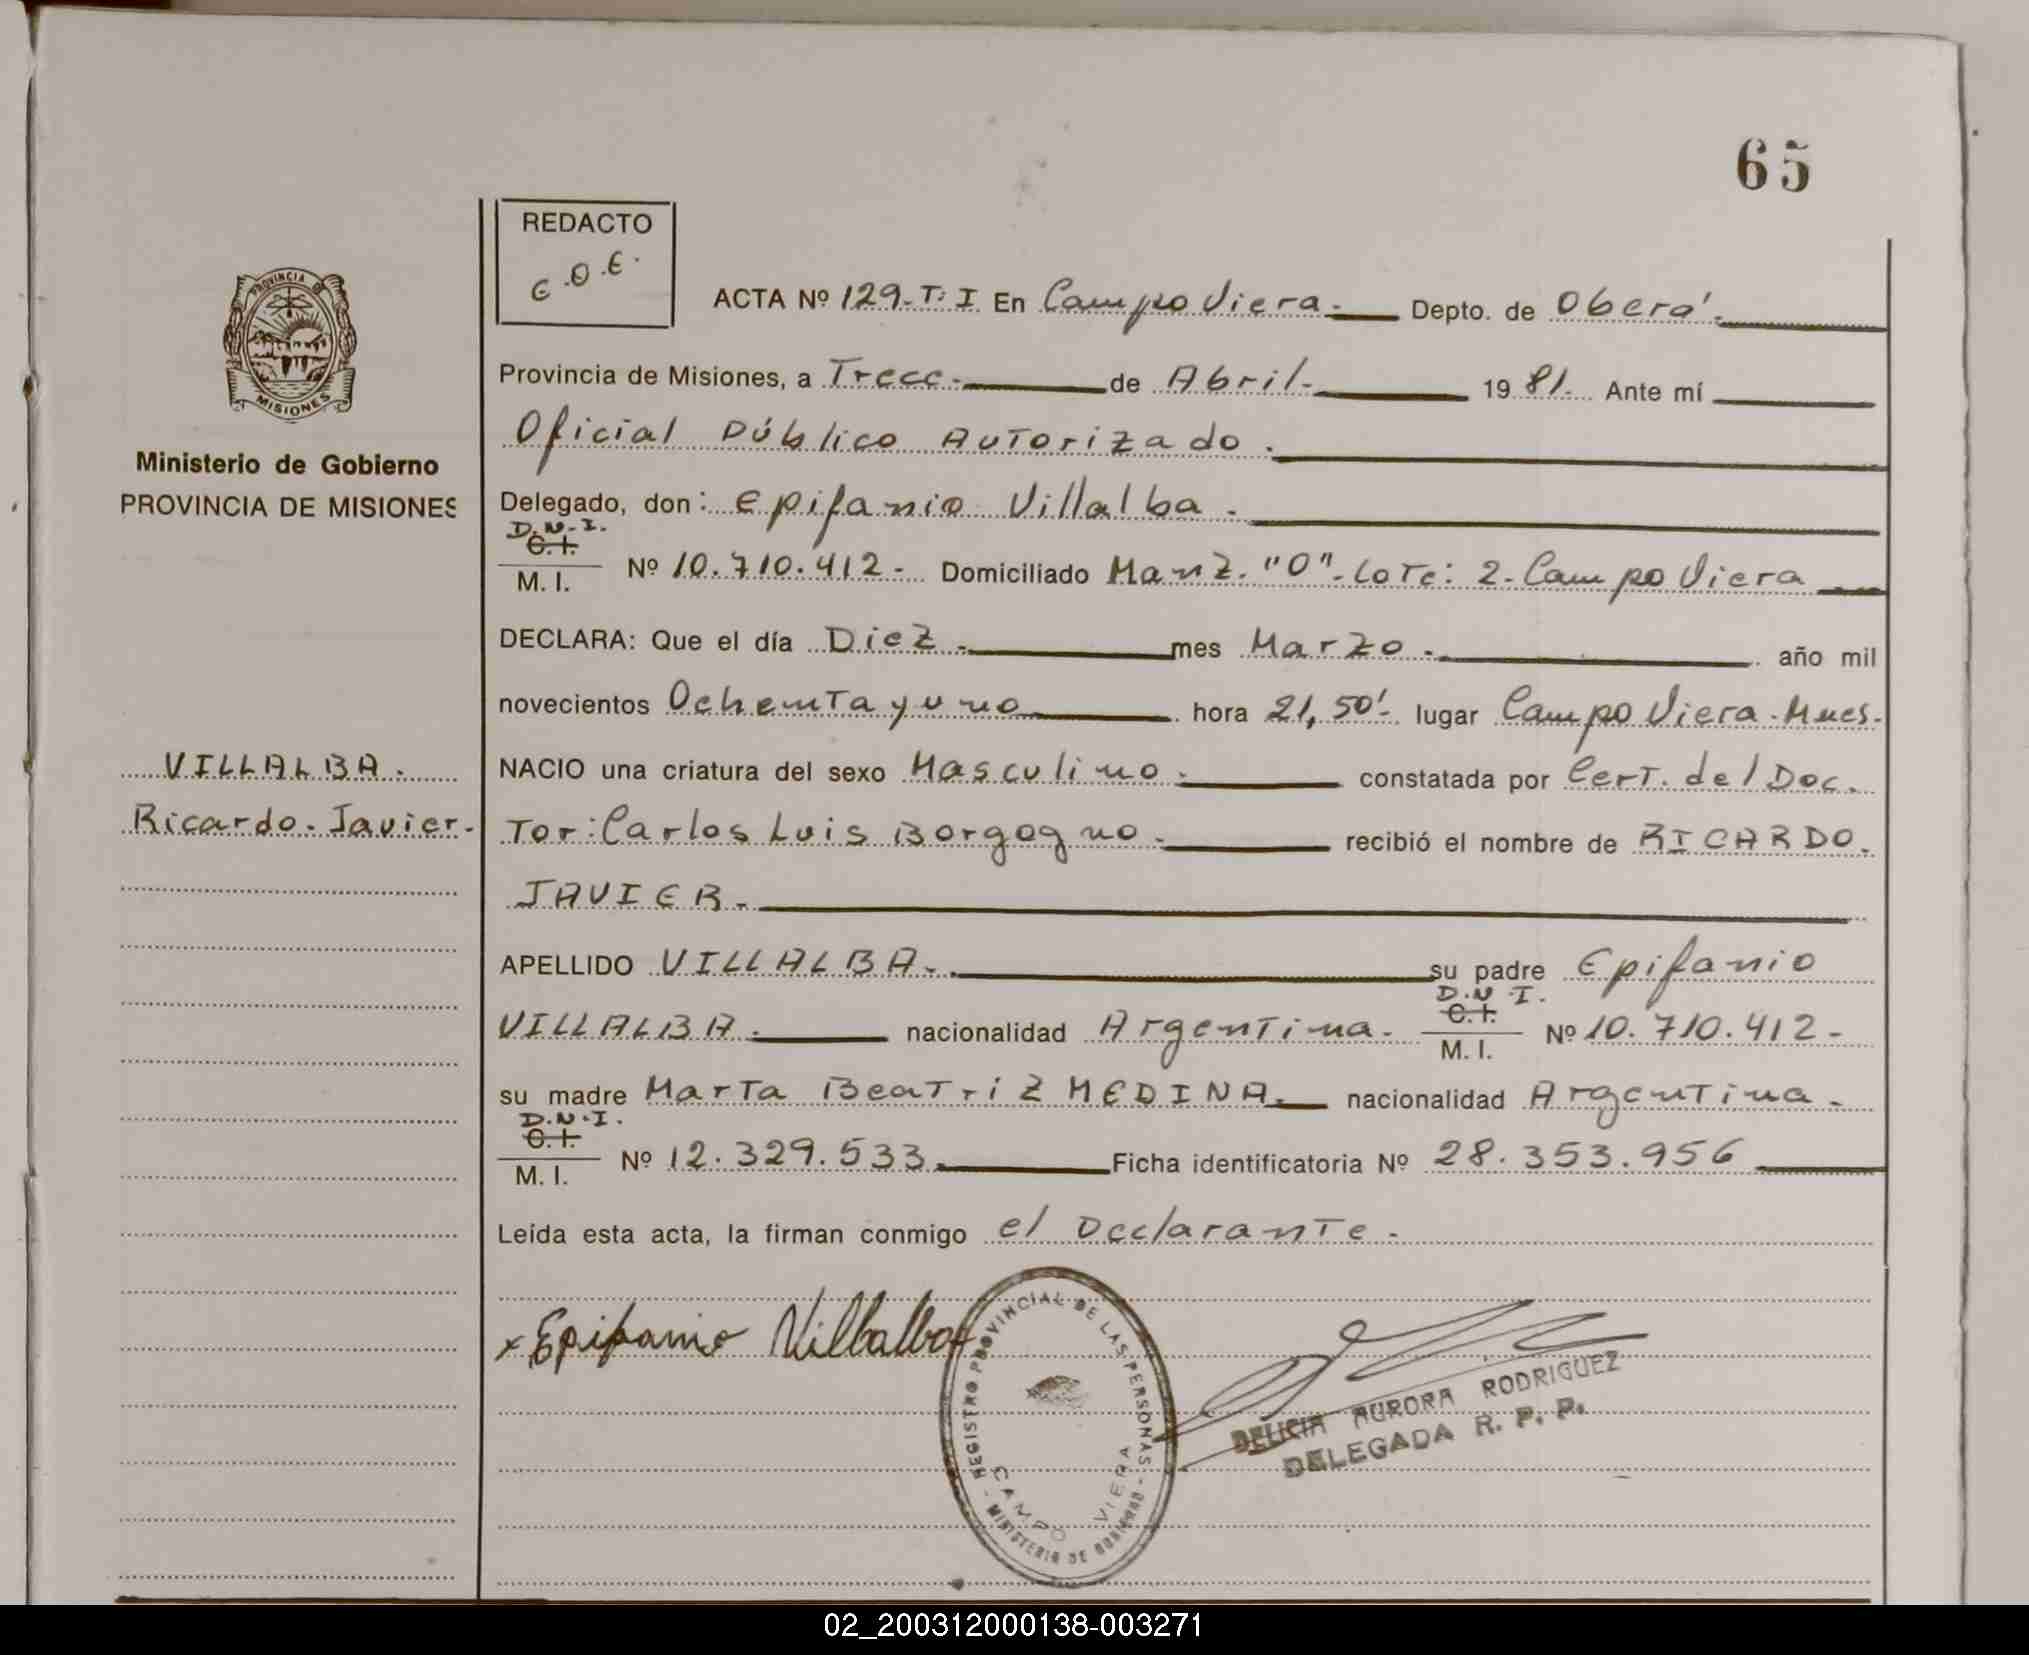 65
REDACTO
C.O.E.
ACTA Nº 129-T: I En Campo Viera.- Depto. de Oberá.
Provincia de Misiones, a Trece.- de Abril.- 1981. Ante mí
Oficial Público Autorizado.
Delegado, don: Epifanio Villalba.
D.N.I.
C.I.
M. I. Nº 10.710.412- Domiciliado Manz. "O". Lote: 2- Campo Viera
DECLARA: Que el día Diez.- mes Marzo.- año mil
novecientos Ochenta y uno hora 21,50'- lugar Campo Viera-Mnes.
NACIO una criatura del sexo Masculino.- constatada por Cert. del Doc.
Tor: Carlos Luis Borgogno.- recibió el nombre de RICARDO.
JAVIER.-
APELLIDO VILLALBA.- su padre Epifanio
VILLALBA.- nacionalidad Argentina.- D.N.I.
C.I.
M. I. Nº 10.710.412-
su madre Marta Beatriz MEDINA.- nacionalidad Argentina.-
D.N.I.
C.I.
M. I. Nº 12.329.533.- Ficha identificatoria Nº 28.353.956
Leída esta acta, la firman conmigo el Declarante.-
x Epifanio Villalba
REGISTRO PROVINCIAL DE LAS PERSONAS
CAMPO VIERA
- MINISTERIO DE GOBIERNO -
DELICIA AURORA RODRIGUEZ
DELEGADA R. P. P.
PROVINCIA
MISIONES
Ministerio de Gobierno
PROVINCIA DE MISIONES
VILLALBA.
Ricardo. Javier.
02_200312000138-003271